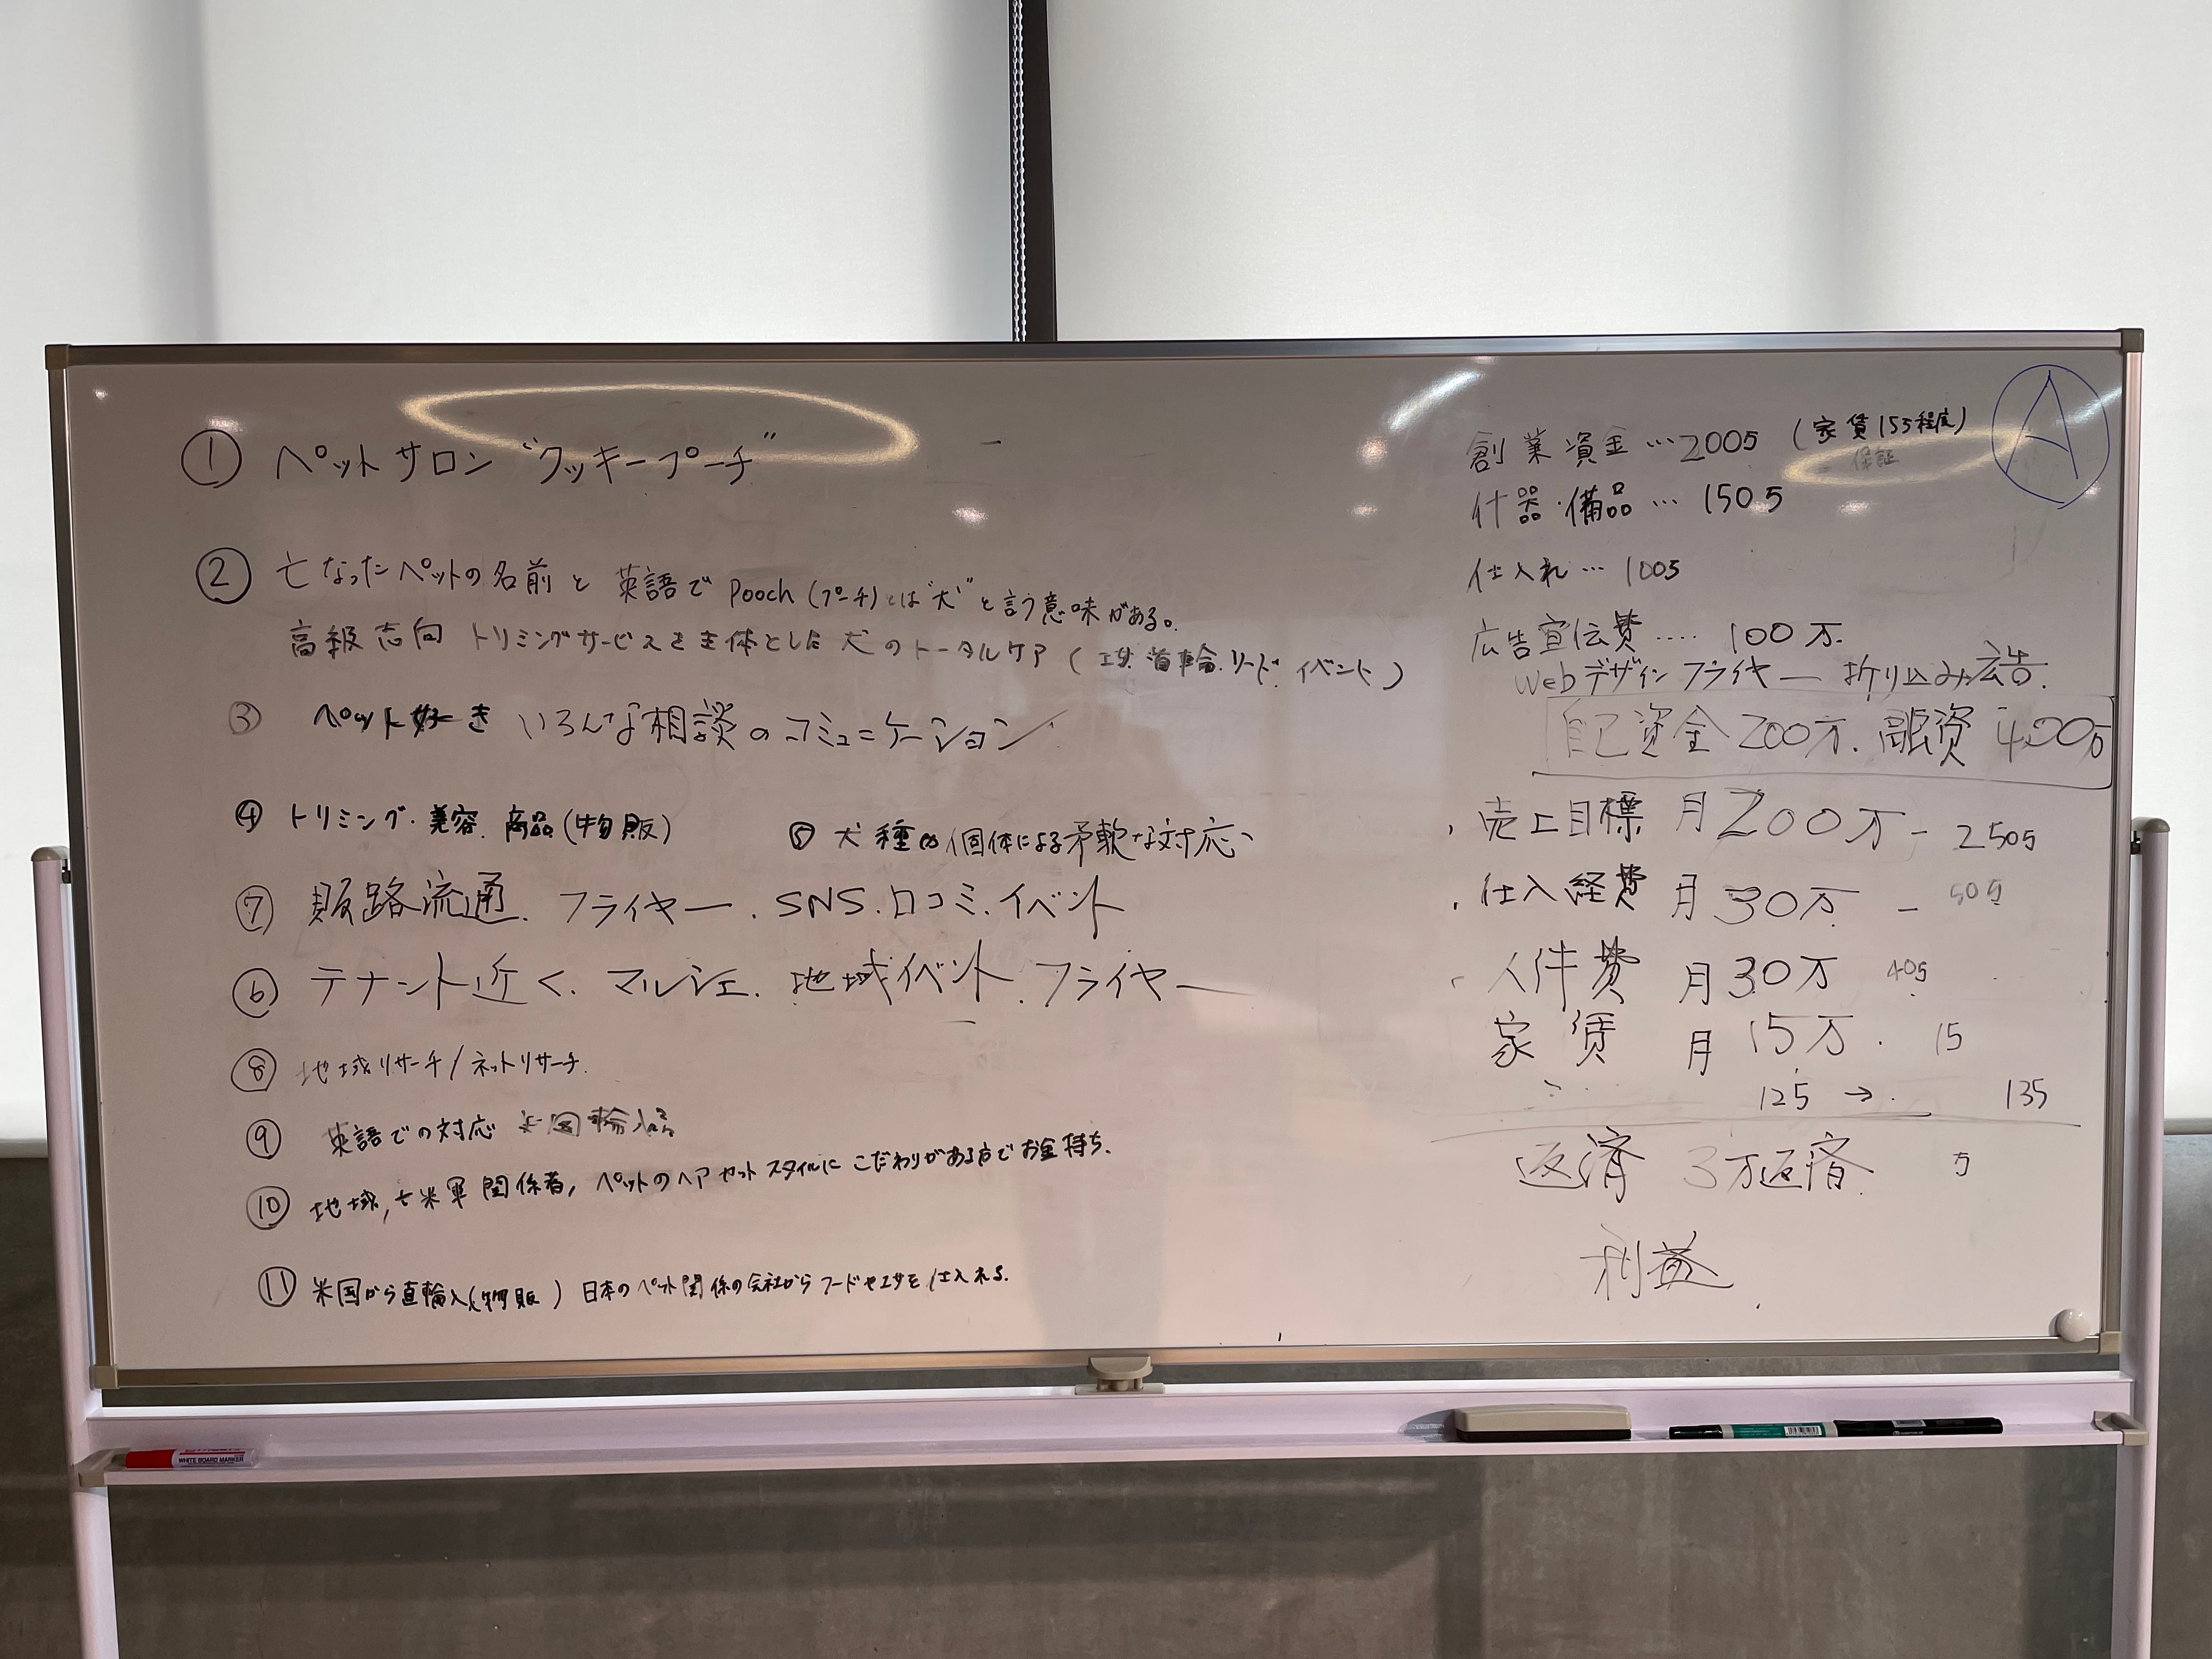 ① ペットサロン “クッキープーチ”
② 亡なったペットの名前と 英語で Pooch (プーチ) とは“犬”と言う意味がある。
高級志向 トリミングサービスを主体とした 犬のトータルケア ( エサ. 首輪. リード. イベント )
③ ペット好き いろんな相談のコミュニケーション
④ トリミング. 美容. 商品(物販)
⑤ 犬種や個体による柔軟な対応
⑦ 販路流通. フライヤー. SNS. 口コミ. イベント
⑥ テナント近く. マルシェ. 地域イベント. フライヤー
⑧ 地域リサーチ / ネットリサーチ.
⑨ 英語での対応 米国輸入
⑩ 地域, 米軍関係者, ペットのヘアカットスタイルに こだわりがある方でお金持ち.
⑪ 米国から直輸入(物販) 日本のペット関係の会社から フードやエサを仕入れる.
A
創業資金…200万 (家賃15万程度)
保証
什器・備品… 150万
仕入れ… 100万
広告宣伝費…. 100万.
Webデザイン フライヤー 折り込み広告.
自己資金 200万. 融資 400万
・売上目標 月 200万 - 250万
・仕入経費 月 30万 - 50万
・人件費 月 30万 40万
家賃 月 15万. 15
125 → 135
返済 3万返済 万
利益